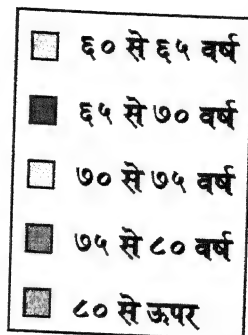 ६० से ६५ वर्ष
६५ से ७० वर्ष
७० से ७५ वर्ष
७५ से ८० वर्ष
८० से ऊपर